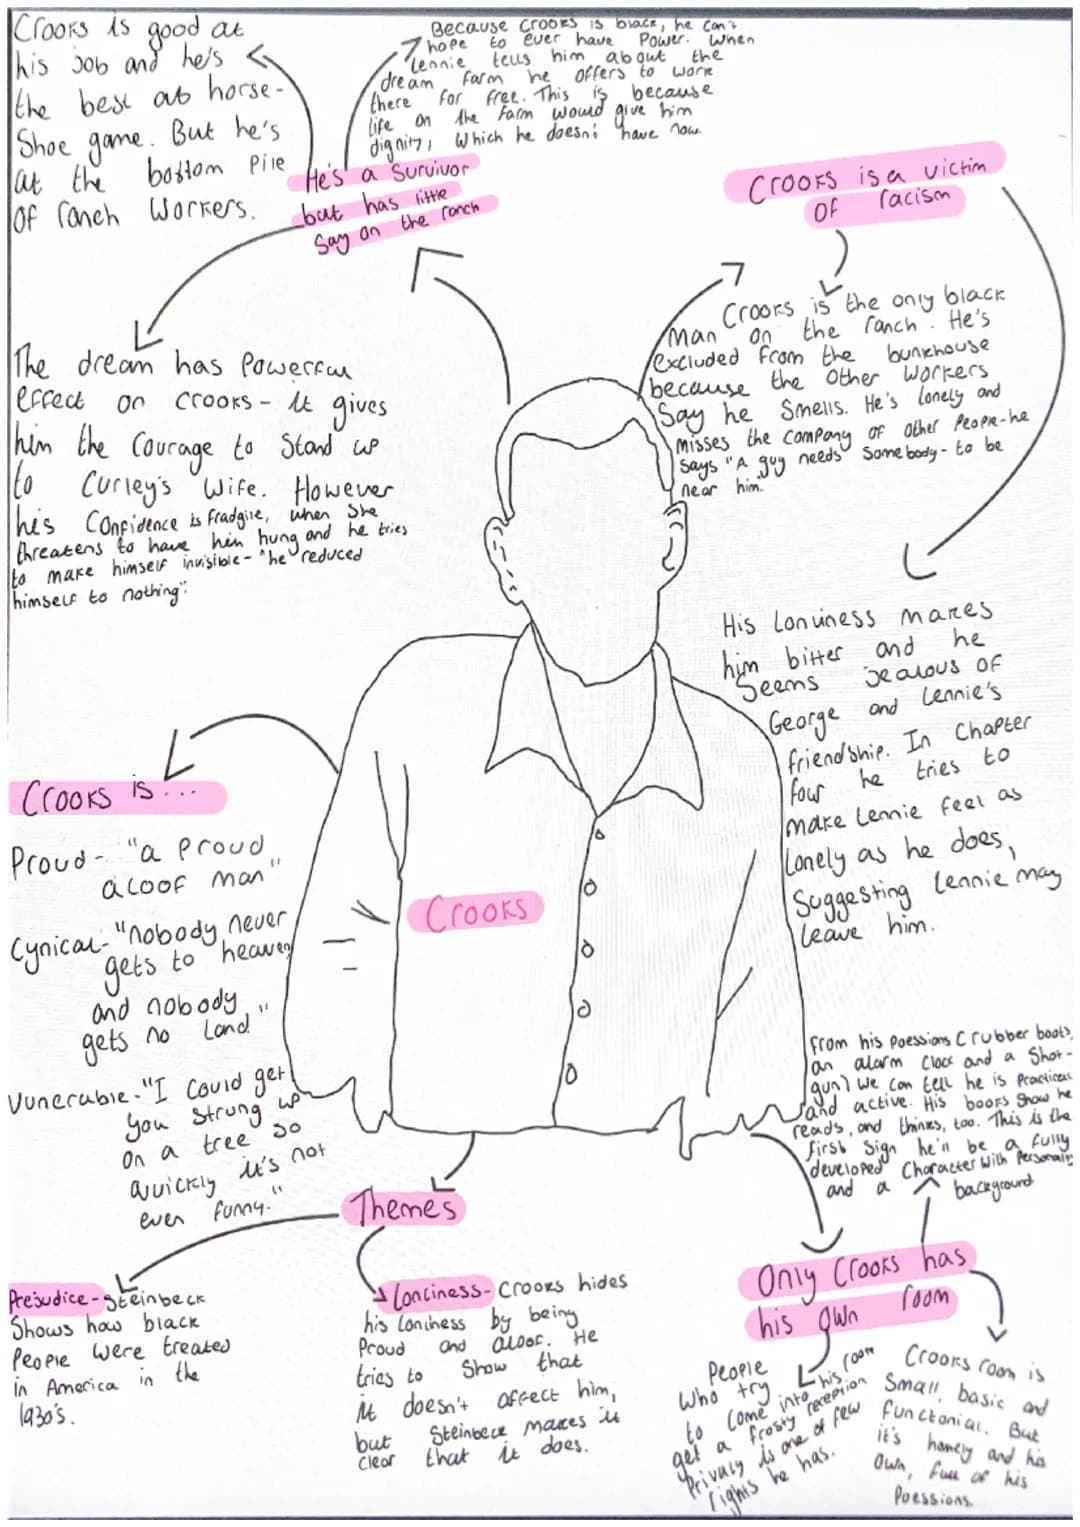 Crooks is good at
his job and he's
the best at horse-
Shoe game. But he's
at the bottom pile
of ranch workers.
Because Crooks is black, he can't
hope to ever have Power. When
Lennie tells him about the
dream farm he offers to work
there for free. This is because
life on the farm would give him
dignity, which he doesn't have now.
He's a Survivor
but has little
Say on the ranch
Crooks is a victim
of racism
Crooks is the only black
man on the ranch. He's
excluded from the bunkhouse
because the other workers
Say he Smells. He's lonely and
misses the company of other People-he
says "A guy needs Somebody- to be
near him.
The dream has Powerful
effect on Crooks- it gives
him the courage to Stand up
to Curley's Wife. However
his Confidence is fradgile, when She
threatens to have him hung and he tries
to make himself invisible- "he reduced
himself to nothing".
His Lonliness makes
him bitter and he
Seems Jealous of
George and Lennie's
friendship. In Chapter
four he tries to
make Lennie feel as
Lonely as he does,
Suggesting Lennie may
leave him.
Crooks is...
Proud- "a Proud
aloof man"
Cynical- "nobody never
gets to heaven
and nobody
gets no Land"
Vunerable- "I could get
you Strung up
on a tree so
quickly it's not
even funny."
Crooks
From his Poessions (rubber boots,
an alarm clock and a Shot-
gun) we can tell he is Practical
and active. His books Show he
reads, and thinks, too. This is the
first Sign he'll be a fully
developed Character With Personality
and a background
Themes
Prejudice- Steinbeck
Shows how black
People were treated
in America in the
1930's.
Lonliness- Crooks hides
his lonliness by being
Proud and aloof. He
tries to Show that
it doesn't affect him,
but Steinbeck makes it
clear that it does.
Only Crooks has
his own room
People
Who try
to come into his room
get a frosty reception
Privacy is one of few
rights he has.
Crooks room is
Small, basic and
functonial. But
it's homely and his
own, full of his
Poessions.